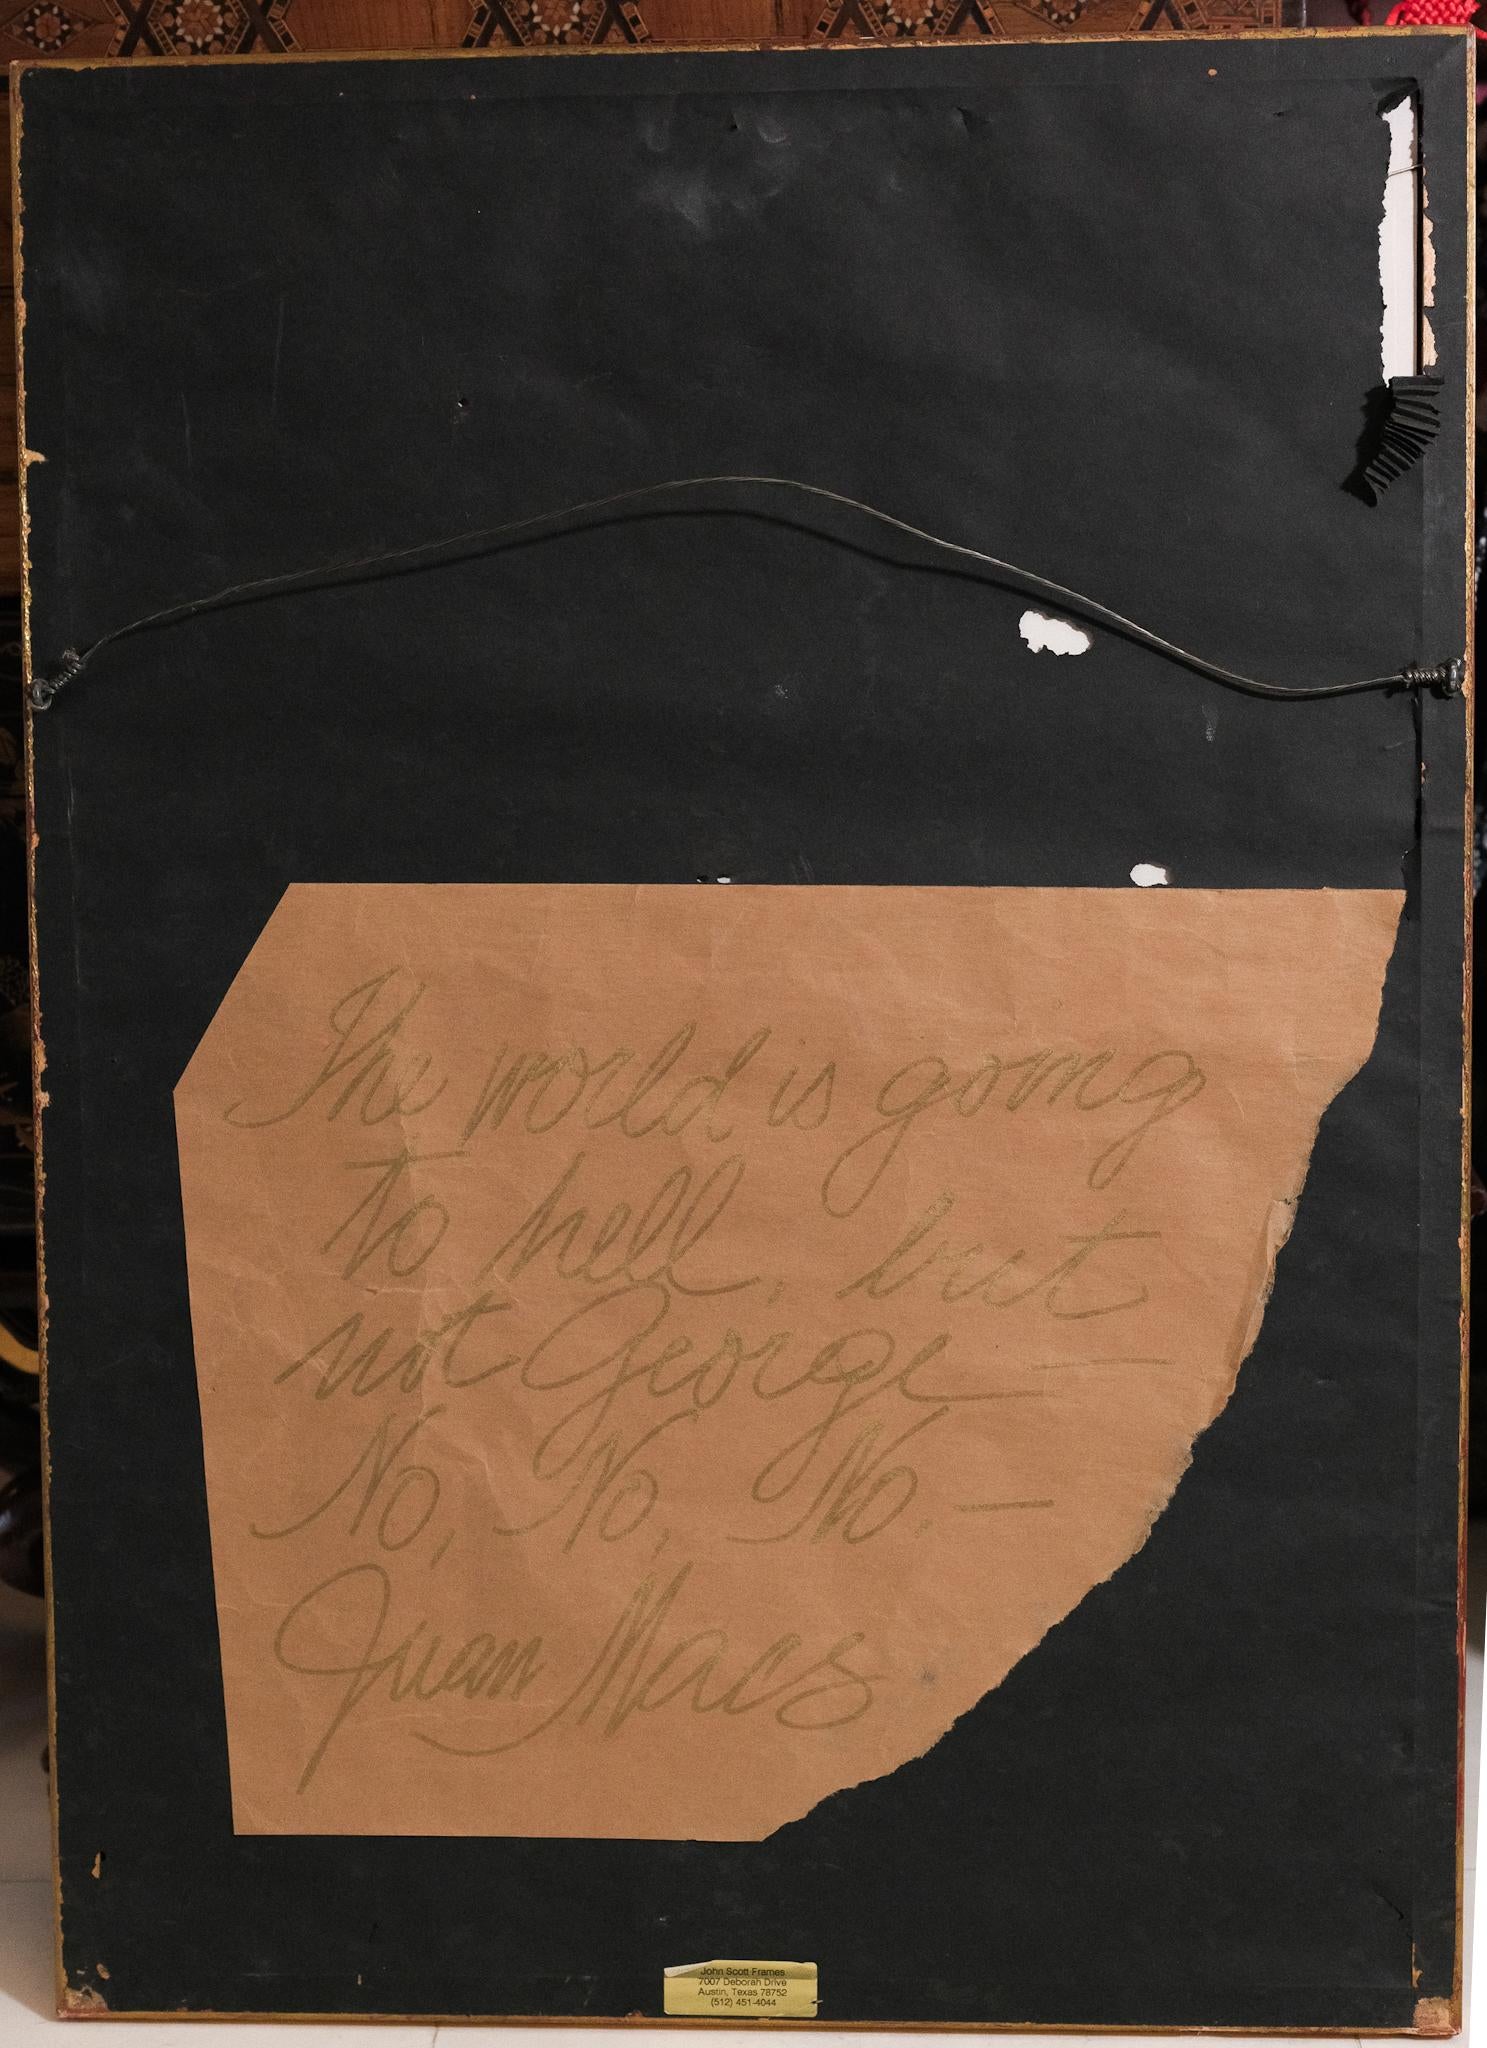 The world is going
to hell, but
not George —
No, No, No. —
Juan Macs
John Scott Frames
7007 Deborah Drive
Austin, Texas 78752
(512) 451-4044